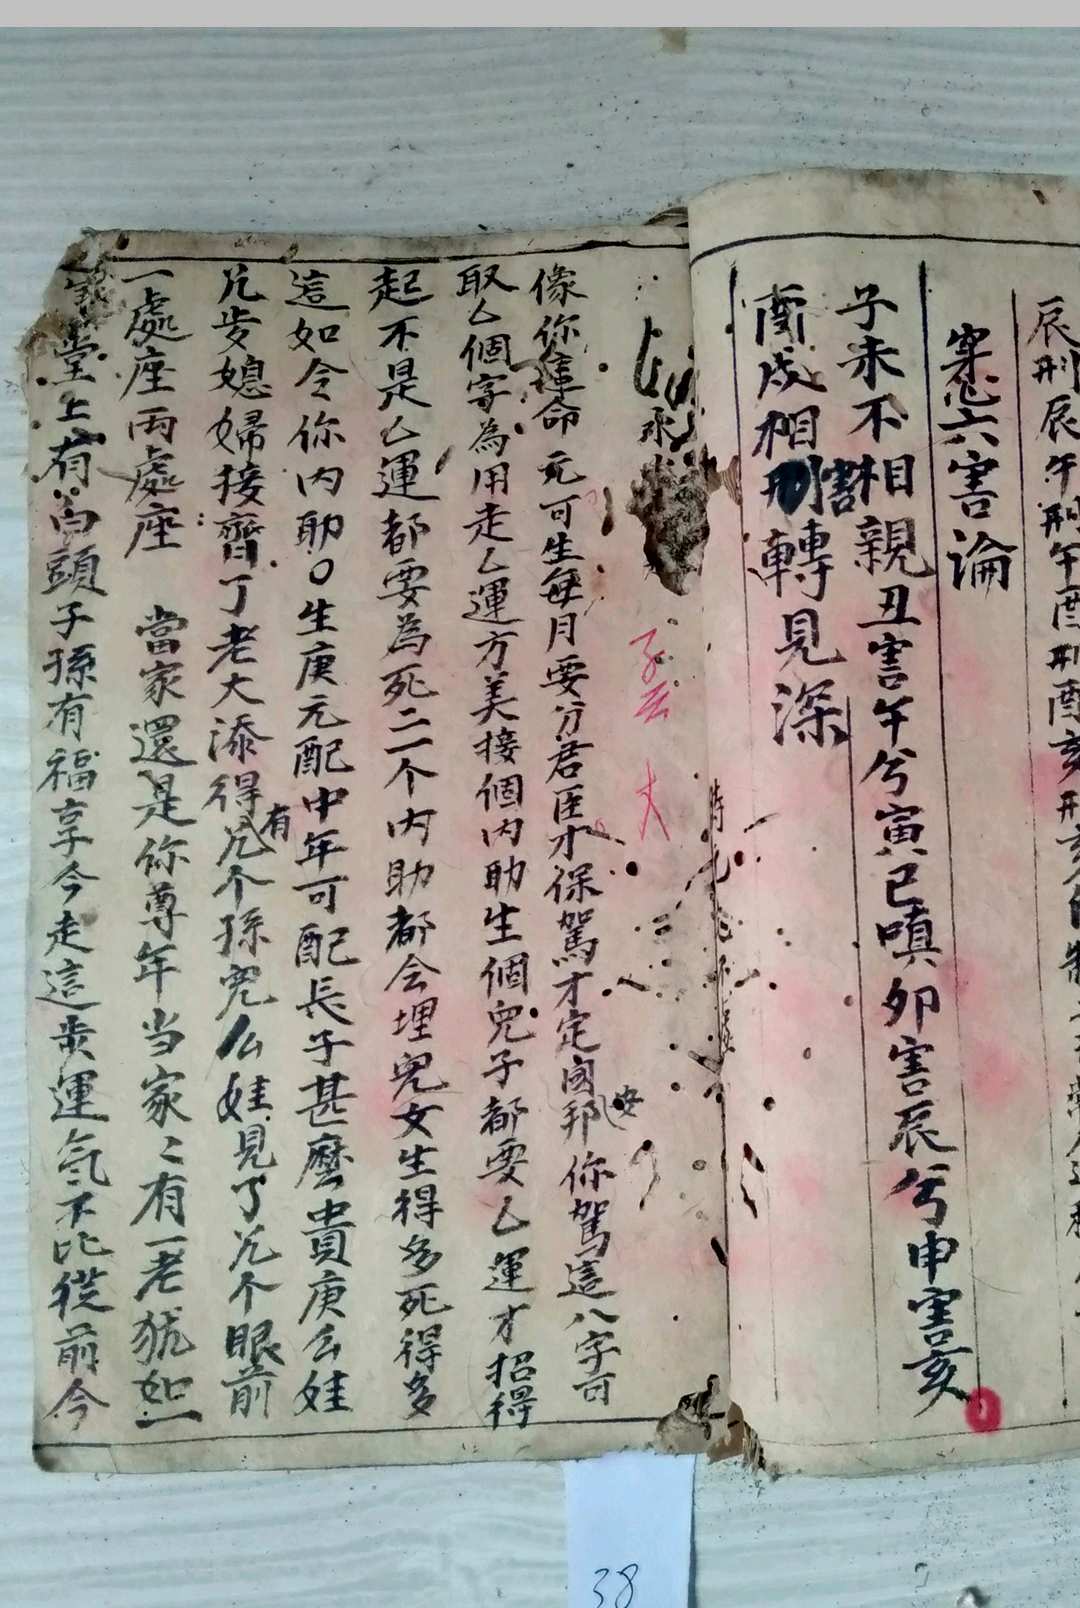 辰刑辰午刑午酉刑酉亥刑亥
六害論
子未不相親丑害午兮寅巳嗔卯害辰兮申害亥
酉戌相害轉見深
像你這命元可生每月要分君臣才保駕才定國邦你駕這八字可
取乙個字為用走乙運方美接個内助生個兒子都要乙運才招得
起不是乙運都要為死二一个内助都会埋兒女生得多死得多
這如今你内助○生庚元配中年可配長子甚麼貴庚么娃
凢步媳婦接齊了老大添得有凢个孫兒么娃見了凢个眼前
一處座両處座 當家還是你尊年当家〻有一老犹如一
堂上有白頭子孫有福享今走這步運氣不比從前今
38